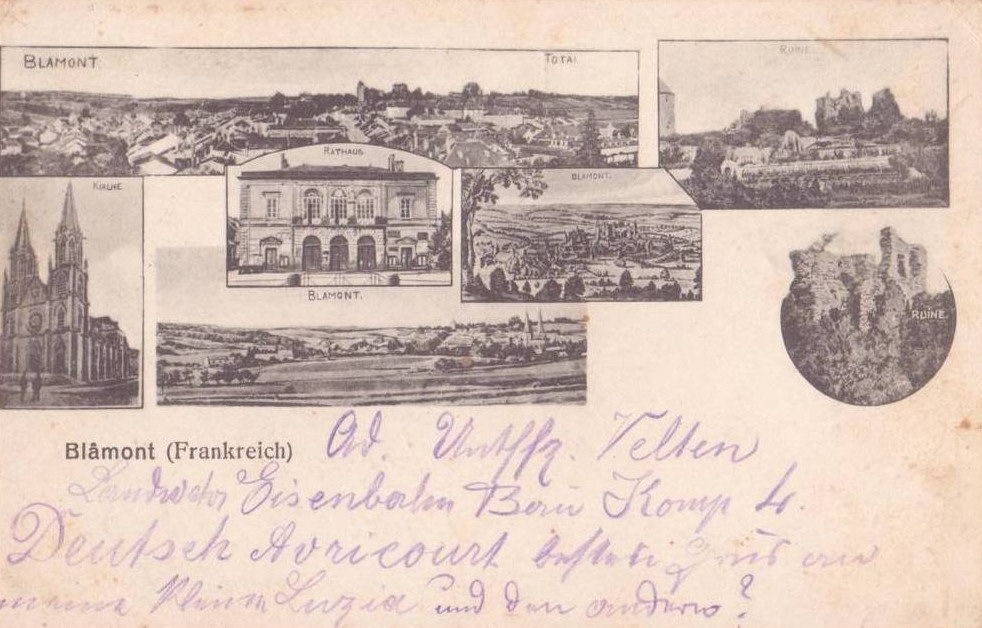 BLAMONT. TOTAL
RUINE.
RATHAUS
KIRCHE
BLAMONT.
BLAMONT.
RUINE.
Blâmont (Frankreich)
Ad. Untffz. Velten
Landwehr Eisenbahn Bau Komp 4.
Deutsch Avricourt Gruß an
meine kleine Luzia und den andern?